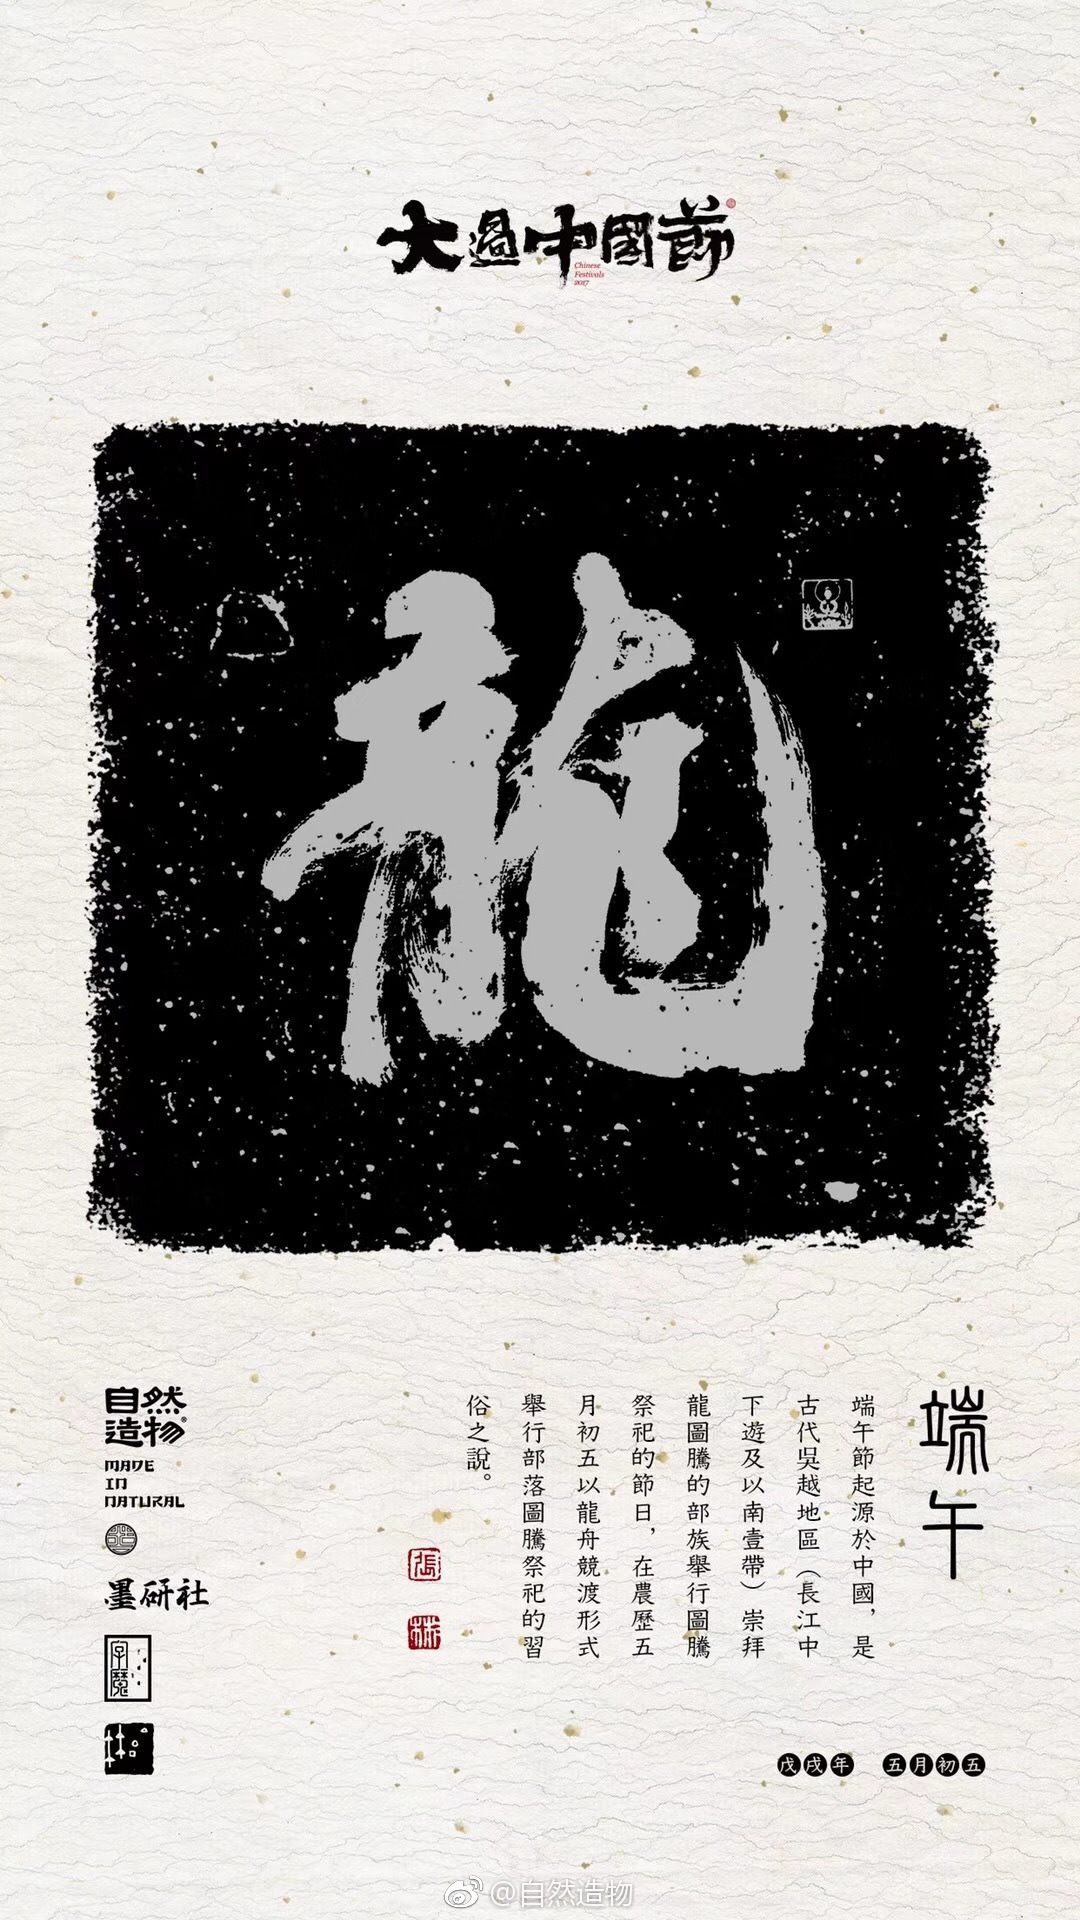 大過中國節
Chinese
Festivals
2017
龍
端午
端午節起源於中國，是
古代吳越地區（長江中
下遊及以南壹帶）崇拜
龍圖騰的部族舉行圖騰
祭祀的節日，在農歷五
月初五以龍舟競渡形式
舉行部落圖騰祭祀的習
俗之說。
張
林
自然
造物
MADE
IN
NATURAL
墨研社
字魔
戊戌年 五月初五
@自然造物